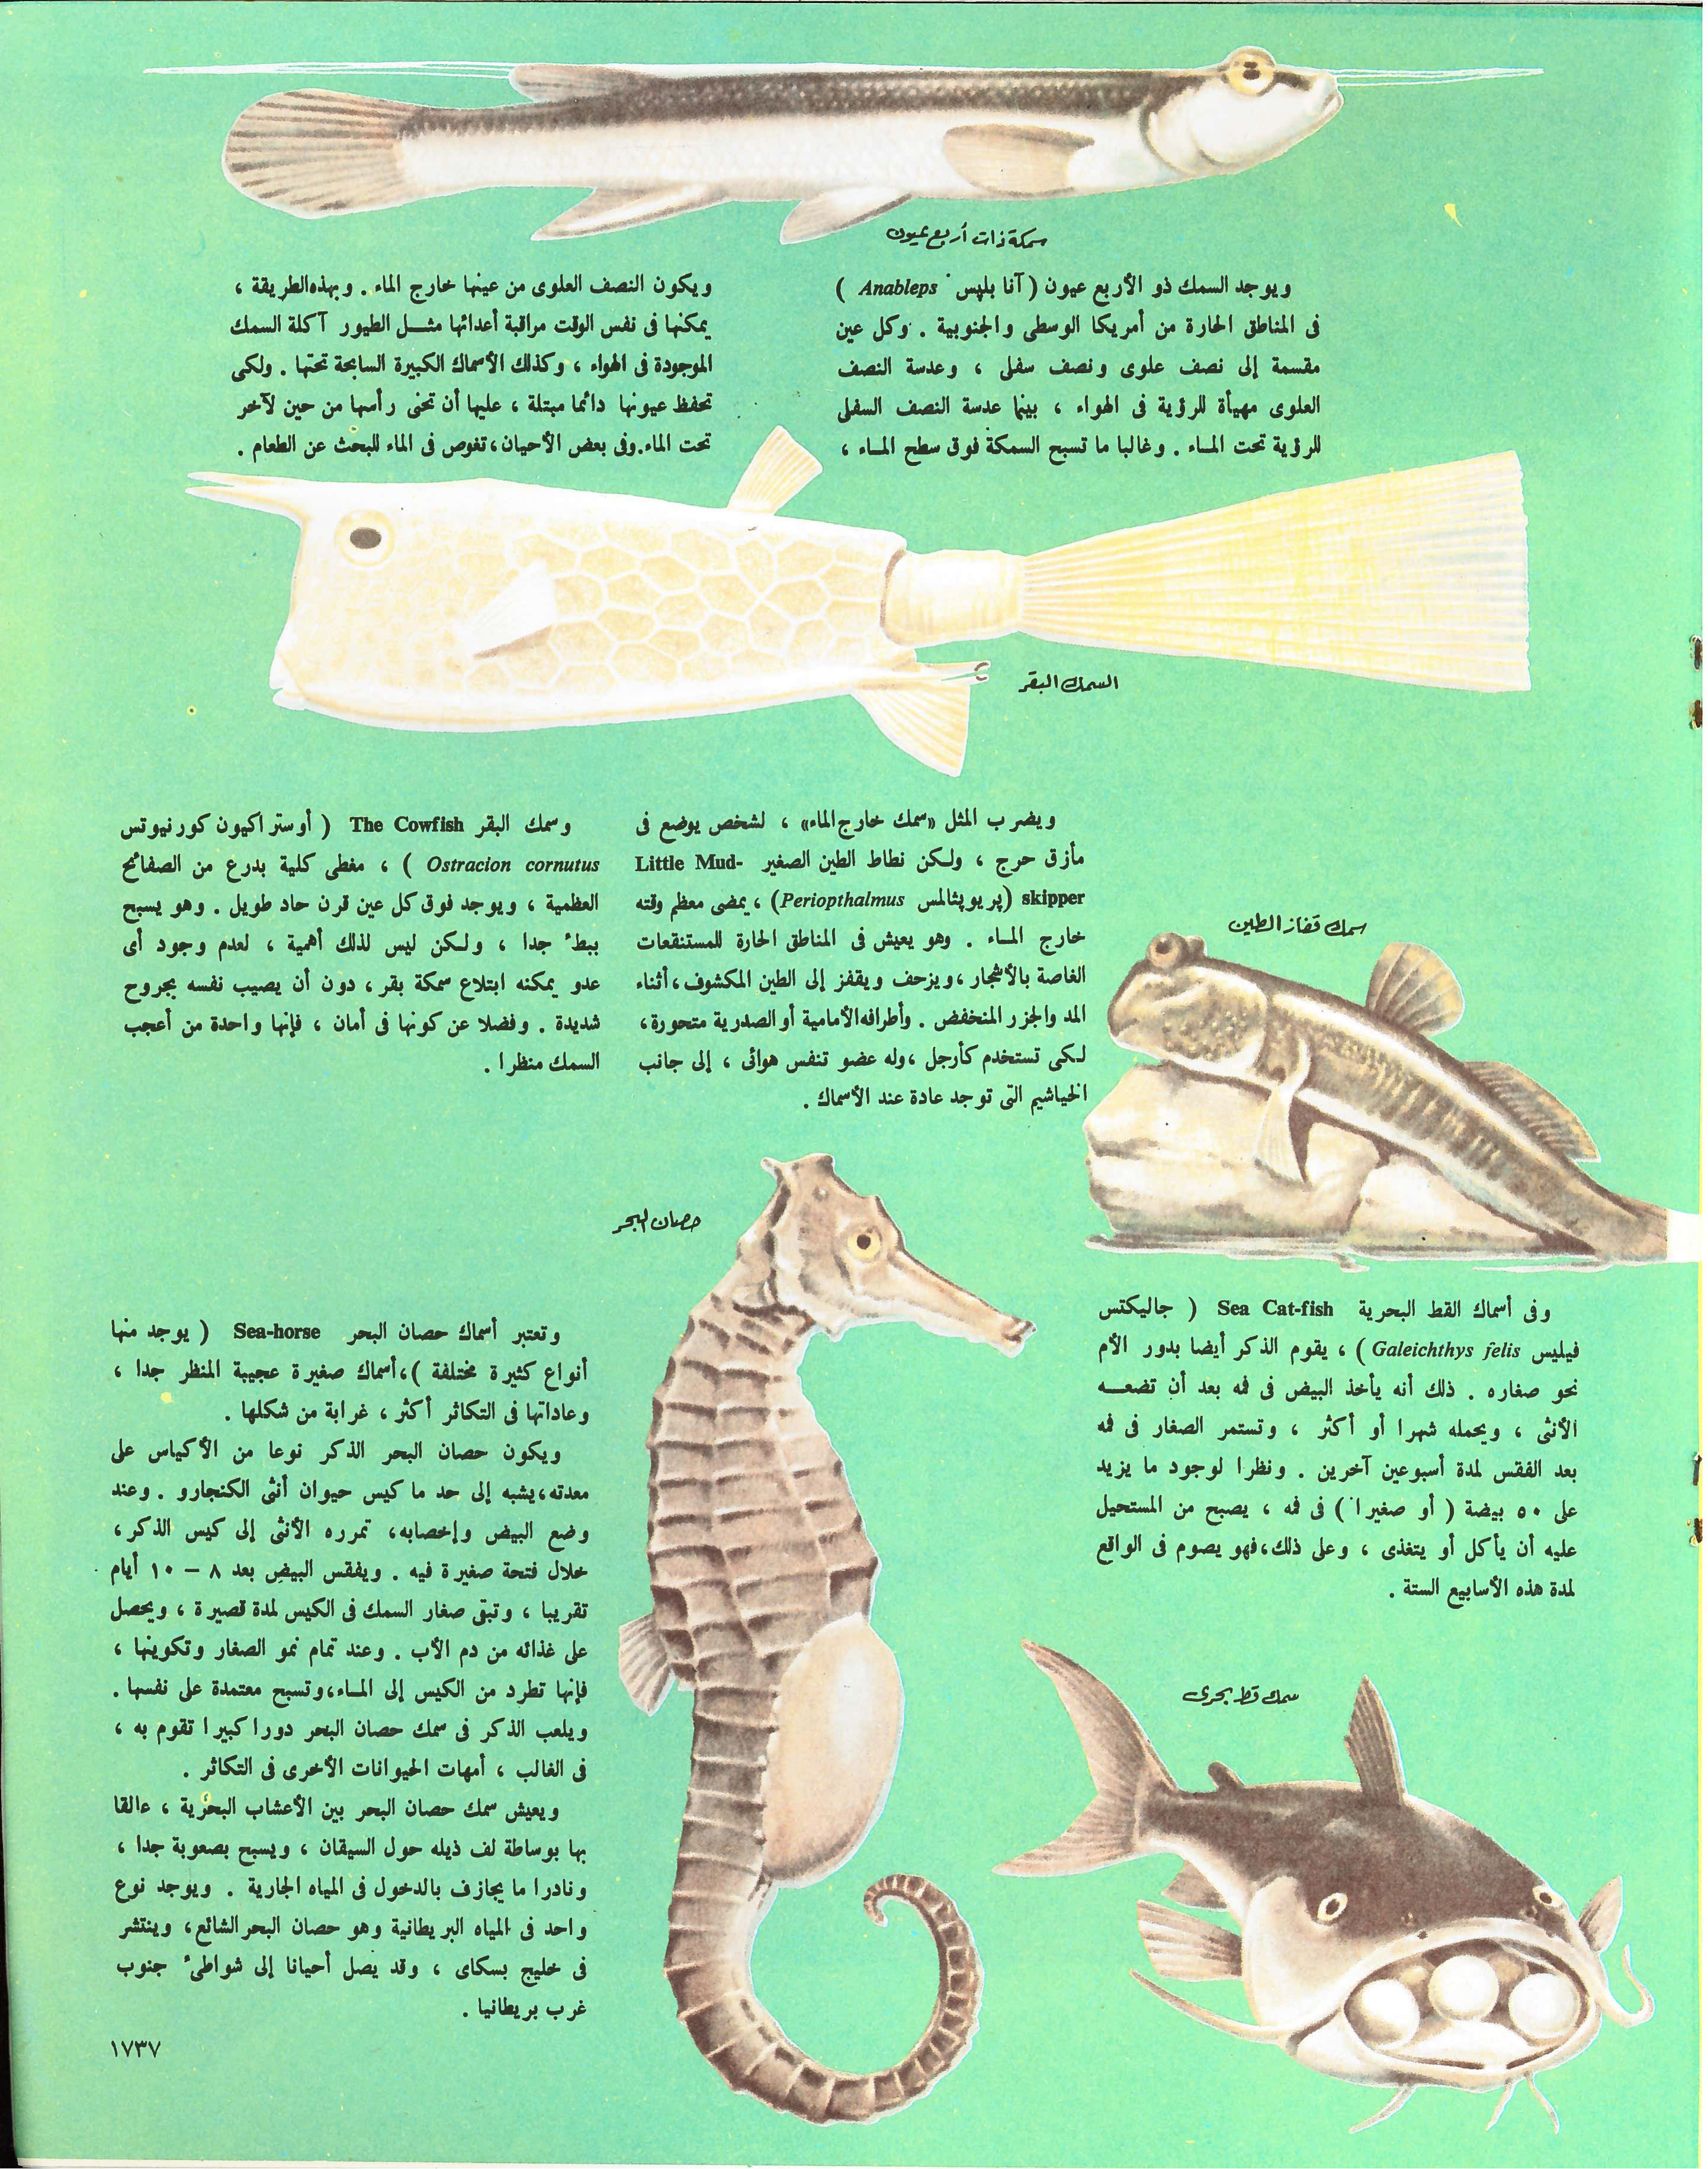 سمكة ذات أربع عيون
ويوجد السمك ذو الأربع عيون ( آنا بليس Anableps )
فى المناطق الحارة من أمريكا الوسطى والجنوبية . وكل عين
مقسمة إلى نصف علوى ونصف سفلى ، وعدسة النصف
العلوى مهيأة للرؤية فى الهواء ، بينما عدسة النصف السفلى
للرؤية تحت الماء . وغالبا ما تسبح السمكة فوق سطح الماء ،
ويكون النصف العلوى من عينها خارج الماء . وبهذه الطريقة ،
يمكنها فى نفس الوقت مراقبة أعدائها مثل الطيور آكلة السمك
الموجودة فى الهواء ، وكذلك الأسماك الكبيرة السابحة تحتها . ولكى
تحفظ عيونها دائما مبتلة ، عليها أن تحنى رأسها من حين لآخر
تحت الماء . وفى بعض الأحيان ، تغوص فى الماء للبحث عن الطعام .
السمك البقر
ويضرب المثل «سمك خارج الماء» ، لشخص يوضع فى
مأزق حرج ، ولكن نطاط الطين الصغير Little Mud-
skipper (پريوپثالمس Periopthalmus) ، يمضى معظم وقته
خارج الماء . وهو يعيش فى المناطق الحارة للمستنقعات
الغاصة بالأشجار ، ويزحف ويقفز إلى الطين المكشوف ، أثناء
المد والجزر المنخفض . وأطرافه الأمامية أو الصدرية متحورة ،
لكى تستخدم كأرجل ، وله عضو تنفس هوائى ، إلى جانب
الخياشيم التى توجد عادة عند الأسماك .
وسمك البقر The Cowfish ( أوستراكيون كورنيوتس
Ostracion cornutus ) ، مغطى كلية بدرع من الصفائح
العظمية ، ويوجد فوق كل عين قرن حاد طويل . وهو يسبح
ببطء جدا ، ولكن ليس لذلك أهمية ، لعدم وجود أى
عدو يمكنه ابتلاع سمكة بقر ، دون أن يصيب نفسه بجروح
شديدة . وفضلا عن كونها فى أمان ، فإنها واحدة من أعجب
السمك منظرا .
سمك قفاز الطين
حصان البحر
وفى أسماك القط البحرية Sea Cat-fish ( جاليكتس
فيليس Galeichthys felis ) ، يقوم الذكر أيضا بدور الأم
نحو صغاره . ذلك أنه يأخذ البيض فى فمه بعد أن تضعه
الأنثى ، ويحمله شهرا أو أكثر ، وتستمر الصغار فى فمه
بعد الفقس لمدة أسبوعين آخرين . ونظرا لوجود ما يزيد
على ٥٠ بيضة ( أو صغيرا ) فى فمه ، يصبح من المستحيل
عليه أن يأكل أو يتغذى ، وعلى ذلك ، فهو يصوم فى الواقع
لمدة هذه الأسابيع الستة .
سمك قط بحرى
وتعتبر أسماك حصان البحر Sea-horse ( يوجد منها
أنواع كثيرة مختلفة ) ، أسماك صغيرة عجيبة المنظر جدا ،
وعاداتها فى التكاثر أكثر ، غرابة من شكلها .
ويكون حصان البحر الذكر نوعا من الأكياس على
معدته ، يشبه إلى حد ما كيس حيوان أنثى الكنجارو . وعند
وضع البيض وإخصابه ، تمرره الأنثى إلى كيس الذكر ،
خلال فتحة صغيرة فيه . ويفقس البيض بعد ٨ – ١٠ أيام
تقريبا ، وتبقى صغار السمك فى الكيس لمدة قصيرة ، ويحصل
على غذائه من دم الأب . وعند تمام نمو الصغار وتكوينها ،
فإنها تطرد من الكيس إلى الماء ، وتسبح معتمدة على نفسها .
ويلعب الذكر فى سمك حصان البحر دورا كبيرا تقوم به ،
فى الغالب ، أمهات الحيوانات الأخرى فى التكاثر .
ويعيش سمك حصان البحر بين الأعشاب البحرية ، عالقا
بها بوساطة لف ذيله حول السيقان ، ويسبح بصعوبة جدا ،
ونادرا ما يجازف بالدخول فى المياه الجارية . ويوجد نوع
واحد فى المياه البريطانية وهو حصان البحر الشائع ، وينتشر
فى خليج بسكاى ، وقد يصل أحيانا إلى شواطئ جنوب
غرب بريطانيا .
١٧٣٧